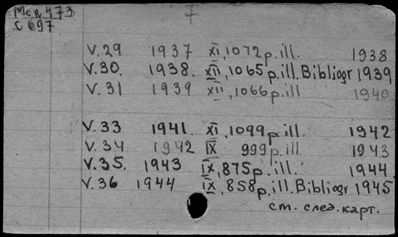 Mca 473
C 697
V.29 1937 XI,1072p.ill. 1938
V.30. 1938. XII,1065p.ill.Bibliogr 1939
V.31 1939 XII,1066p.ill 1940
V.33 1941. XI,1099p.ill. 1942
V.34 1942 IX 999p.ill 1943
V.35. 1943 IX,875p.ill. 1944
V.36 1944 IX,858p.ill.Bibliogr 1945
см. след.карт.